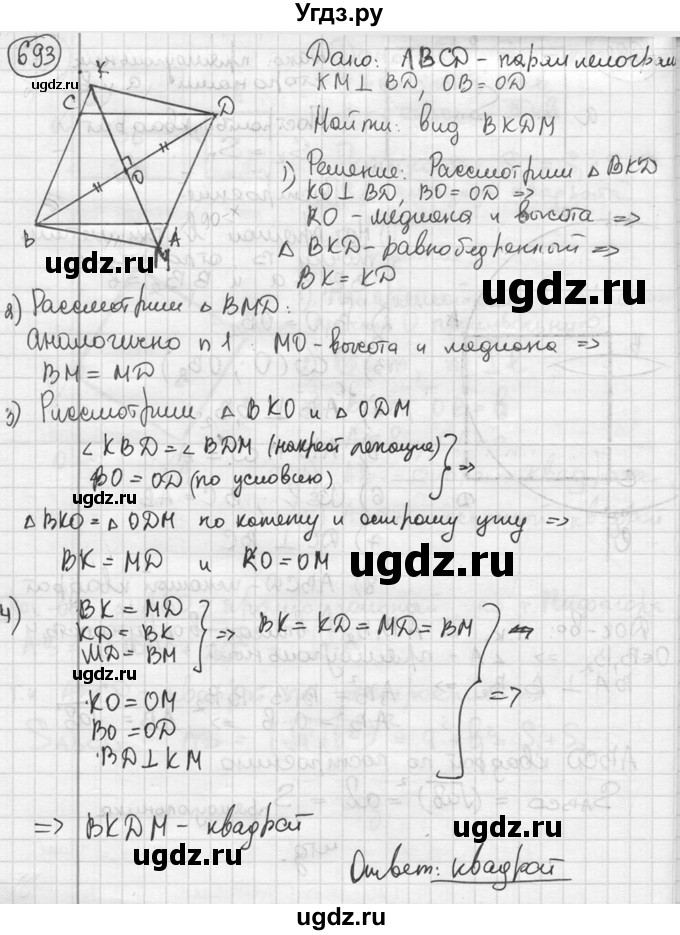 Угдз.ру
693
Дано: ABCD - параллелограм
KM⊥BD, OB=OD
Найти: вид BKDM
K
C
D
O
B
A
M
1) Решение: Рассмотрим △BKD
KO⊥BD, BO=OD =>
KO - медиана и высота =>
△BKD - равнобедренный =>
BK=KD
2) Рассмотрим △BMD:
аналогично п1: MO - высота и медиана =>
BM=MD
3) Рассмотрим △BKO и △ODM
∠KBD=∠BDM (накрест лежащие)
BO=OD (по условию) } =>
△BKO=△ODM по катету и острому углу =>
BK=MD и KO=OM
4) BK=MD
KD=BK
MD=BM } => BK=KD=MD=BM
·KO=OM
BO=OD
·BD⊥KM } =>
=> BKDM - квадрат
Ответ: квадрат
ugdz.ru
ugdz.ru
ugdz.ru
ugdz.ru
ugdz.ru
ugdz.ru
ugdz.ru
ugdz.ru
ugdz.ru
ugdz.ru
ugdz.ru
ugdz.ru
ugdz.ru
ugdz.ru